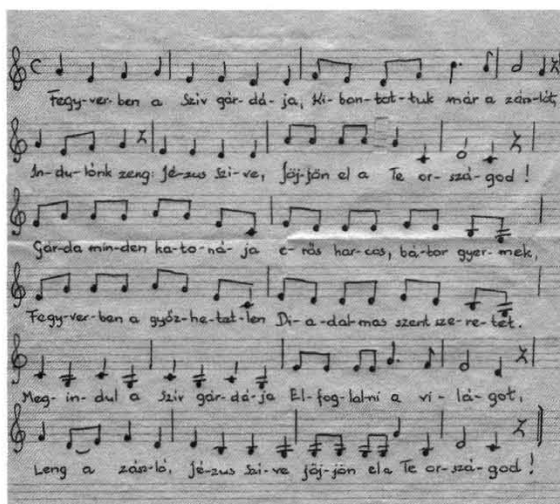 Fegy-ver-ben a Sziv gár-dá-ja, Ki-bon-tot-tuk már a zász-lót
In-du-lónk zeng: Jé-zus Szi-ve, Jöj-jön el a Te or-szá-god!
Gár-da min-den ka-to-ná-ja e-rős har-cos, bá-tor gyer-mek,
Fegy-ver-ben a győz-he-tet-len Di-a-dal-mas szent sze-re-tet.
Meg-in-dul a Sziv gár-dá-ja El-fog-lal-ni a vi-lá-got,
Leng a zász-ló, Jé-zus Szi-ve jöj-jön el a Te or-szá-god!